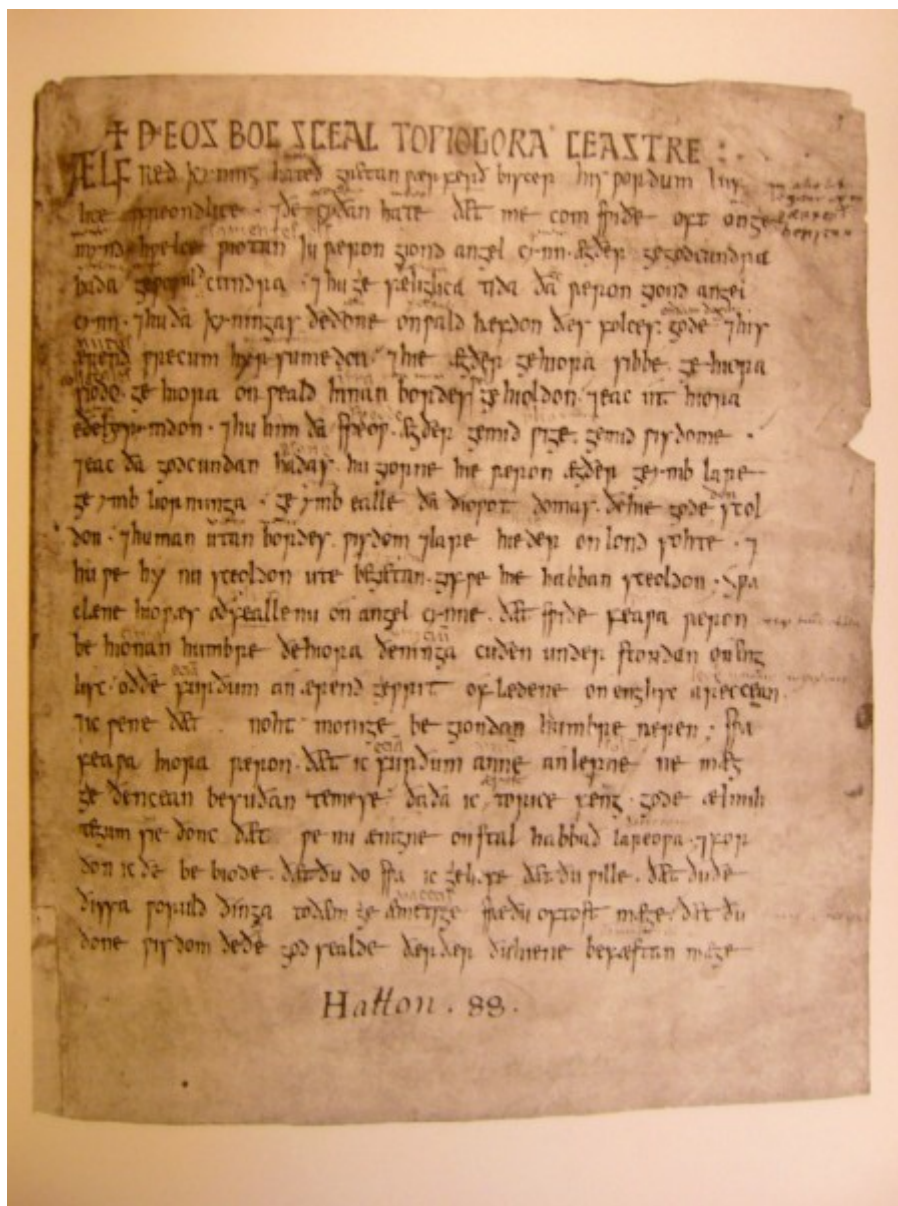 ✝ ÐEOS BOC SCEAL TO ǷIOGORA CEASTRE
ÆLFRED kyning hateð gretan ƿærferð biscep his ƿordum luf
lice ⁊ freondlice · ⁊ ðe cyðan hate ðæt me com suiðe oft on ge
mynd hƿelce ƿiotan iu ƿæron giond angel cynn · ægðer ge godcundra
hada ge ƿoruldcundra · ⁊ hu gesæliglica tida ða ƿæron giond angel
cynn · ⁊ hu ða kyningas ðe ðone onƿald hæfdon ðæs folces gode ⁊ his
ærendƿrecum hyrsumedon · ⁊ hie ægðer ge hiora sibbe ge hiora
siodo · ge hiora onƿeald innan bordes gehioldon · ⁊ eac ut hiora
eðel rymdon · ⁊ hu him ða speoƿ ægðer ge mid ƿige · ge mid ƿisdome ·
⁊ eac ða godcundan hadas · hu giorne hie ƿæron ægðer ge ymb lare
ge ymb liornunga · ge ymb ealle ða ðioƿotdomas · ðe hie gode scol
don · ⁊ hu man utan bordes · ƿisdom ⁊ lare hieder on lond sohte · ⁊
hu ƿe hy nu sceoldon ute begietan · gif ƿe hie habban sceoldon · sƿa
clæne hio ƿæs oðfeallenu on angel cynne · ðæt suiðe feaƿa ƿæron
be hionan humbre ðe hiora ðeninga cuðen understondan on eng
lisc · oððe furðum an ærendgeƿrit of lædene on englisc areccean ·
⁊ ic ƿene ðæt noht monige be giondan humbre næren · sua
feaƿa hiora ƿæron · ðæt ic furðum anne anlepne ne mæg
geðencean be suðan temese · ða ða ic to rice feng · gode ælmih
tegum sie ðonc ðæt ƿe nu ænigne on stal habbað lareoƿa · ⁊ for
ðon ic ðe bebiode · ðæt ðu do sua ic geliefe ðæt ðu ƿille · ðæt ðu ðe
ðissa ƿoruld ðinga to ðæm geæmetige sua ðu oftost mæge · ðæt ðu
ðone ƿisdom ðe ðe god sealde ðær ðær ðu hiene befæstan mæge
Hatton . 88 .